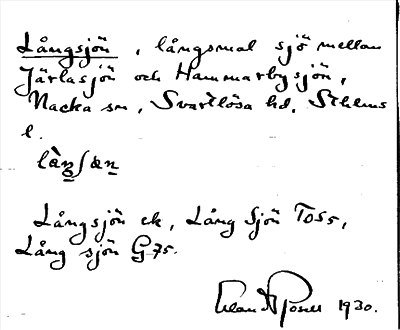 Långsjön, långsmal sjö mellan
Järlasjön och Hammarbysjön,
Nacka sn, Svartlösa hd, Sthlms
l.
Långsjön ek, Lång Sjön To55,
Lång sjön G75.
1930.